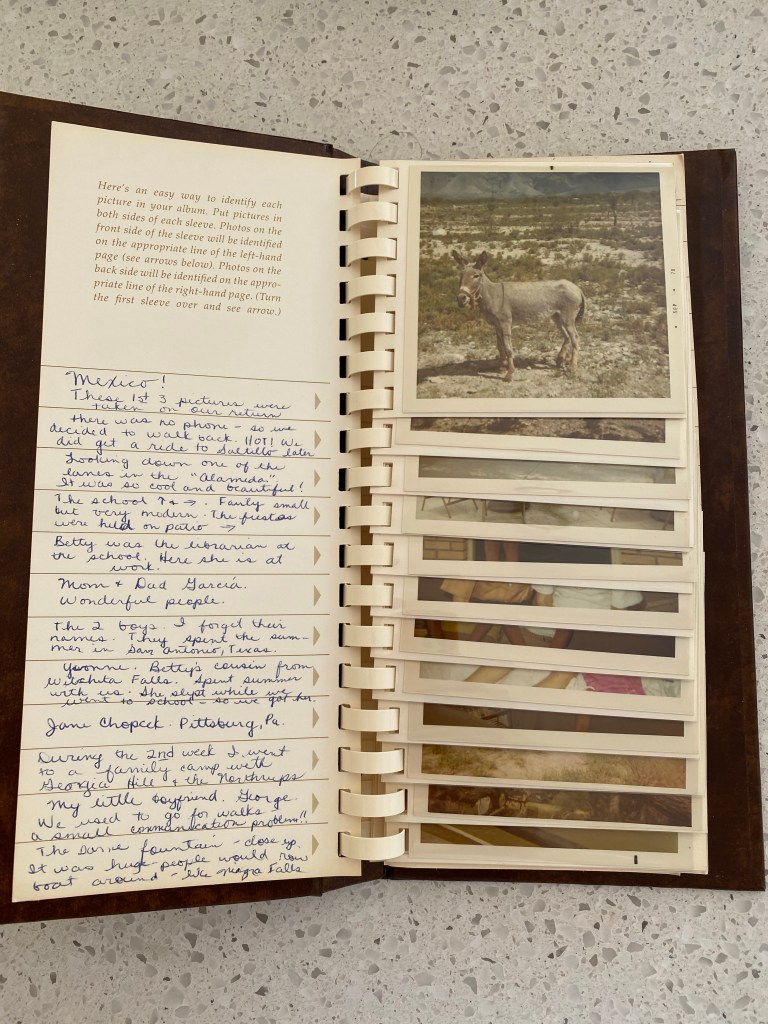 Here's an easy way to identify each
picture in your album. Put pictures in
both sides of each sleeve. Photos on the
front side of the sleeve will be identified
on the appropriate line of the left-hand
page (see arrows below). Photos on the
back side will be identified on the appro-
priate line of the right-hand page. (Turn
the first sleeve over and see arrow.)
Mexico!
These 1st 3 pictures were
taken on our return
there was no phone - so we
decided to walk back. HOT! We
did get a ride to Saltillo later
Looking down one of the
lanes in the "Alameda"
It was so cool and beautiful!
The school ↑ & →. Fairly small
but very modern. The fiestas
were held on patio →
Betty was the librarian at
the school. Here she is at
work.
Mom & Dad García.
Wonderful people.
The 2 boys. I forget their
names. They spent the sum-
mer in San Antonio, Texas.
Yvonne. Betty's cousin from
Witchita Falls. Spent summer
with us. She slept while we
went to school - so we got her.
Jane Chopcek. Pittsburg, Pa.
During the 2nd week I went
to a family camp with
Georgia Hill & the Northrups
My little boyfriend. George.
We used to go for walks -
a small communication problem!!
The fountain - close up.
It was huge - people would row
boat around - like Falls
SEP • 70